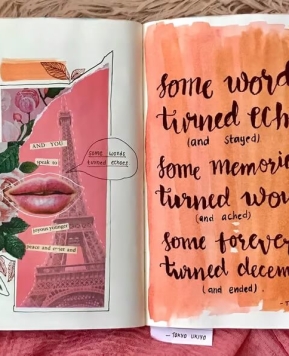 AND YOU
speak so
some words
turned echoes
peace and
some word
turned ech
(and stayed)
some memorie
turned wou
(and ached)
some forever
turned decem
(and ended).